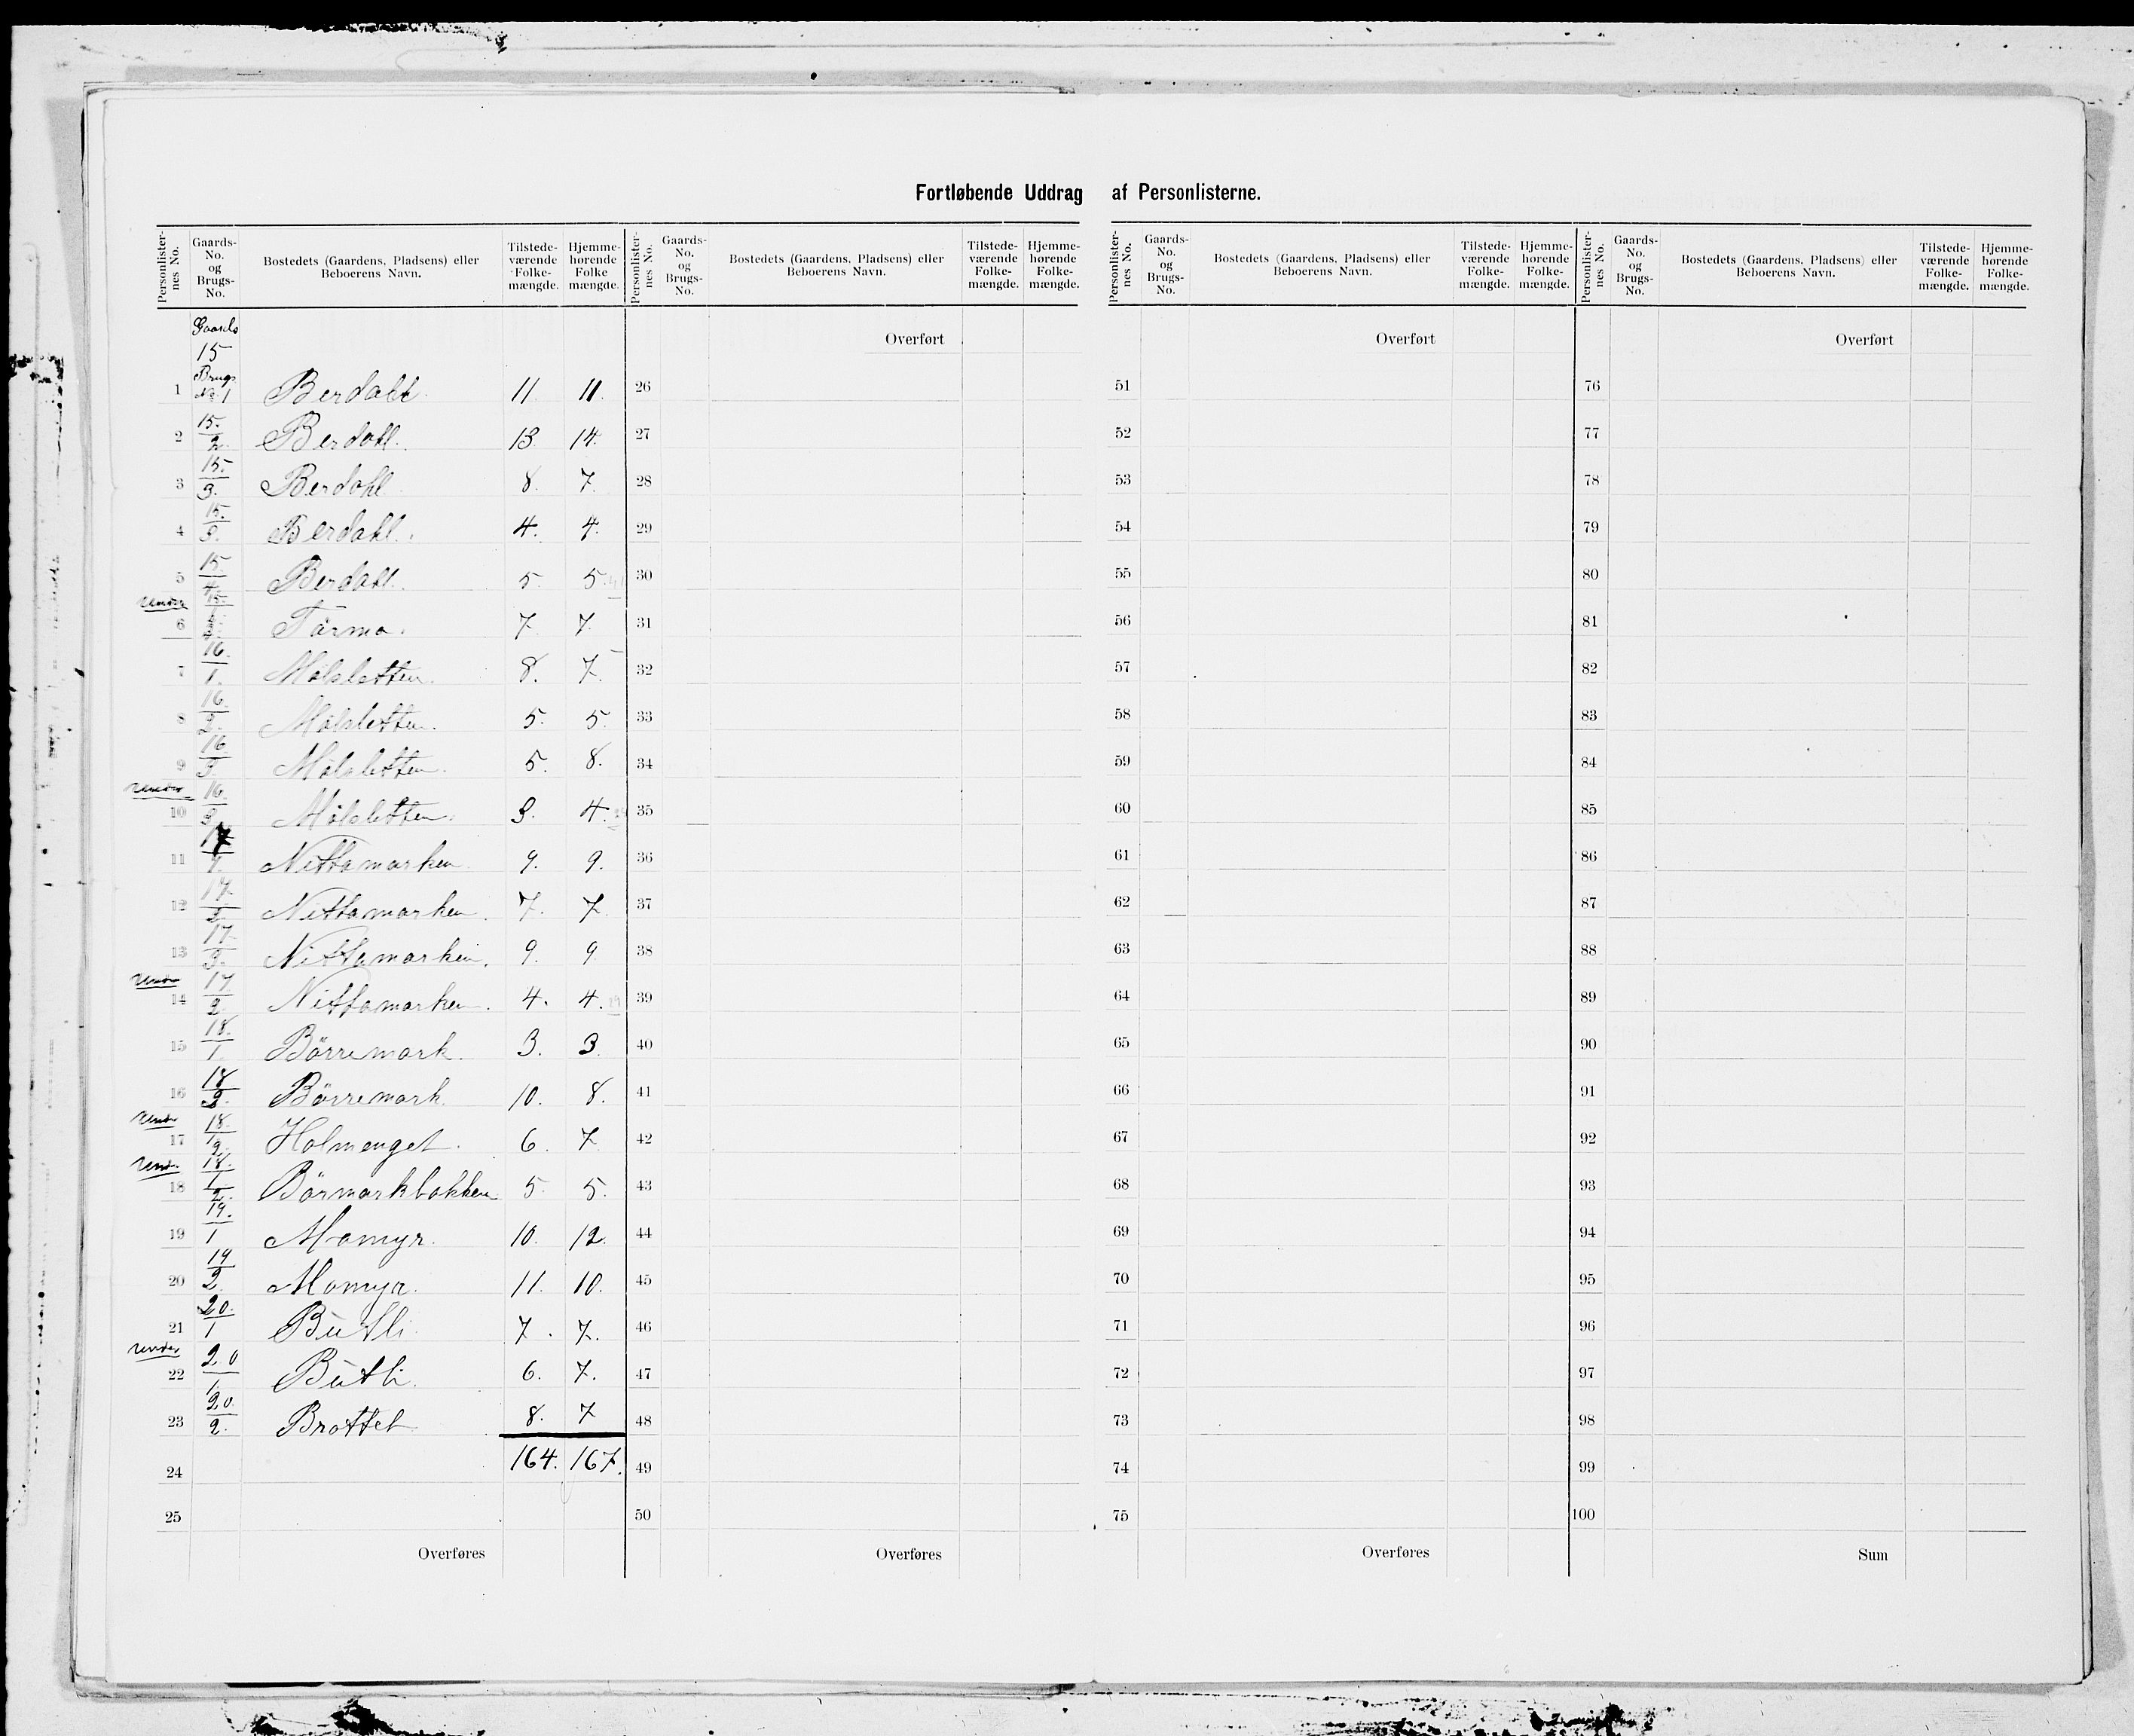 Fortløbende Uddrag af Personlisterne.
Personlister-nes No. Gaards-No. og Brugs-No. Bostedets (Gaardens, Pladsens) eller Beboerens Navn. Tilstede-værende Folke-mængde. Hjemme-hørende Folke mængde.
Gaards
15
Brugs
1 No 1 Berdahl 11. 11.
2 15./2. Berdahl. 13 14.
3 15./3. Berdahl 8. 7.
4 15./3. Berdahl. 4. 4.
5 15./4. Berdahl. 5. 5.
6 15. Tårmo. 7. 7.
7 16./1. Målsletten. 8. 7.
8 16./2. Målsletten. 5. 5.
9 16./3. Målsletten. 5. 8.
10 16./3. Målsletten. 3. 4.
11 17/1. Nittamarken. 9. 9.
12 17./2. Nittamarken. 7. 7.
13 17./3. Nittamarken. 9. 9
14 17./2. Nittamarken. 4. 4.
15 18./1. Börremark. 3. 3.
16 18/2. Börremark. 10. 8.
17 18./1/2. Holmenget. 6. 7
18 18./1/2. Börmarkbakken 5. 5.
19 19./1 Momyr. 10. 12.
20 19/2. Momyr. 11. 10.
21 20./1 Butli 7. 7.
22 20/1. Butli. 6. 7.
23 20./2. Brottet 8. 7
24 164. 167.
25
Overføres
Personlister-nes No. Gaards-No. og Brugs-No. Bostedets (Gaardens, Pladsens) eller Beboerens Navn. Tilstede-værende Folke-mængde. Hjemme-hørende Folke-mængde.
Overført
26
27
28
29
30
31
32
33
34
35
36
37
38
39
40
41
42
43
44
45
46
47
48
49
50
Overføres
Personlister-nes No. Gaards-No. og Brugs-No. Bostedets (Gaardens, Pladsens) eller Beboerens Navn. Tilstede-værende Folke-mængde. Hjemme-hørende Folke-mængde.
Overført
51
52
53
54
55
56
57
58
59
60
61
62
63
64
65
66
67
68
69
70
71
72
73
74
75
Overføres
Personlister-nes No. Gaards-No. og Brugs-No. Bostedets (Gaardens, Pladsens) eller Beboerens Navn. Tilstede-værende Folke-mængde. Hjemme-hørende Folke-mængde.
Overført
76
77
78
79
80
81
82
83
84
85
86
87
88
89
90
91
92
93
94
95
96
97
98
99
100
Sum